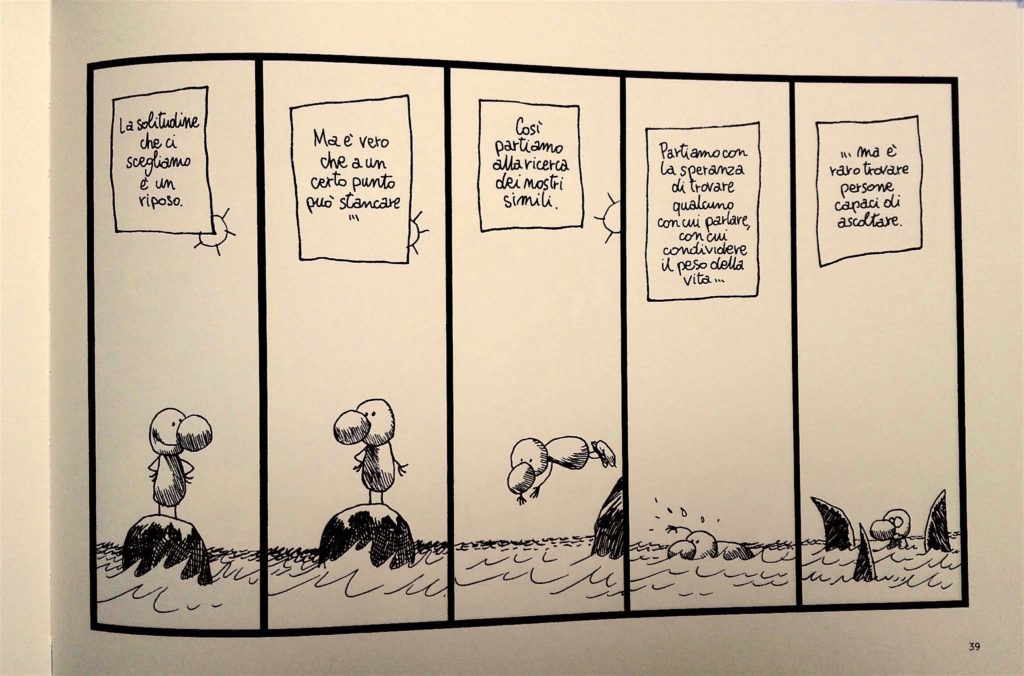 La solitudine
che ci
scegliamo
è un
riposo.
Ma è vero
che a un
certo punto
può stancare
...
Così
partiamo
alla ricerca
dei nostri
simili.
Partiamo con
la speranza
di trovare
qualcuno
con cui parlare,
con cui
condividere
il peso della
vita...
... ma è
raro trovare
persone
capaci di
ascoltare.
39